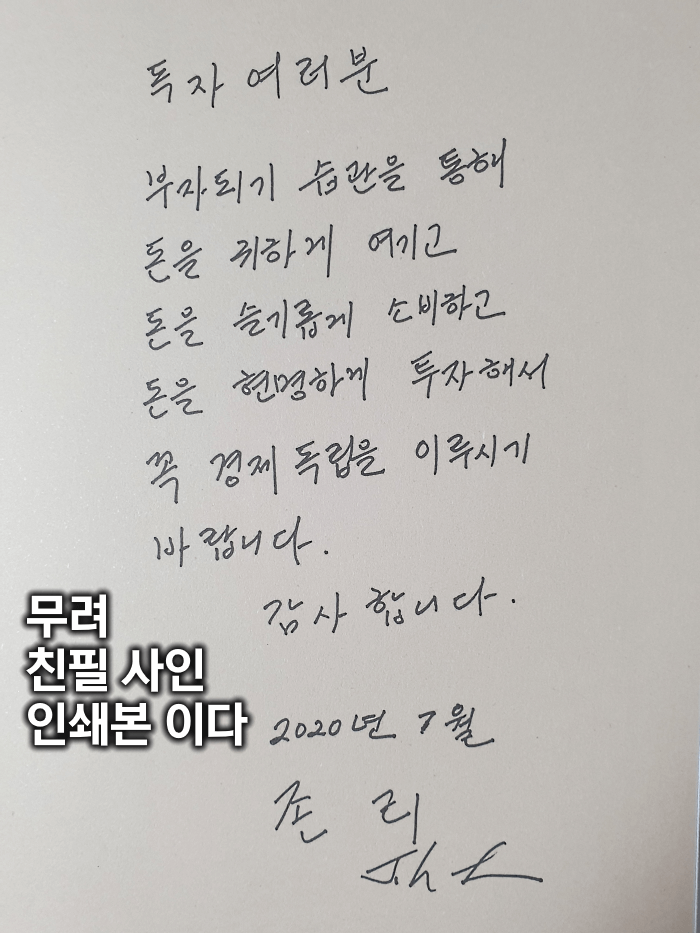 독자 여러분
부자되기 습관을 통해
돈을 귀하게 여기고
돈을 슬기롭게 소비하고
돈을 현명하게 투자해서
꼭 경제독립을 이루시기
바랍니다.
감사합니다.
무려
친필 사인
인쇄본 이다
2020년 7월
존 리